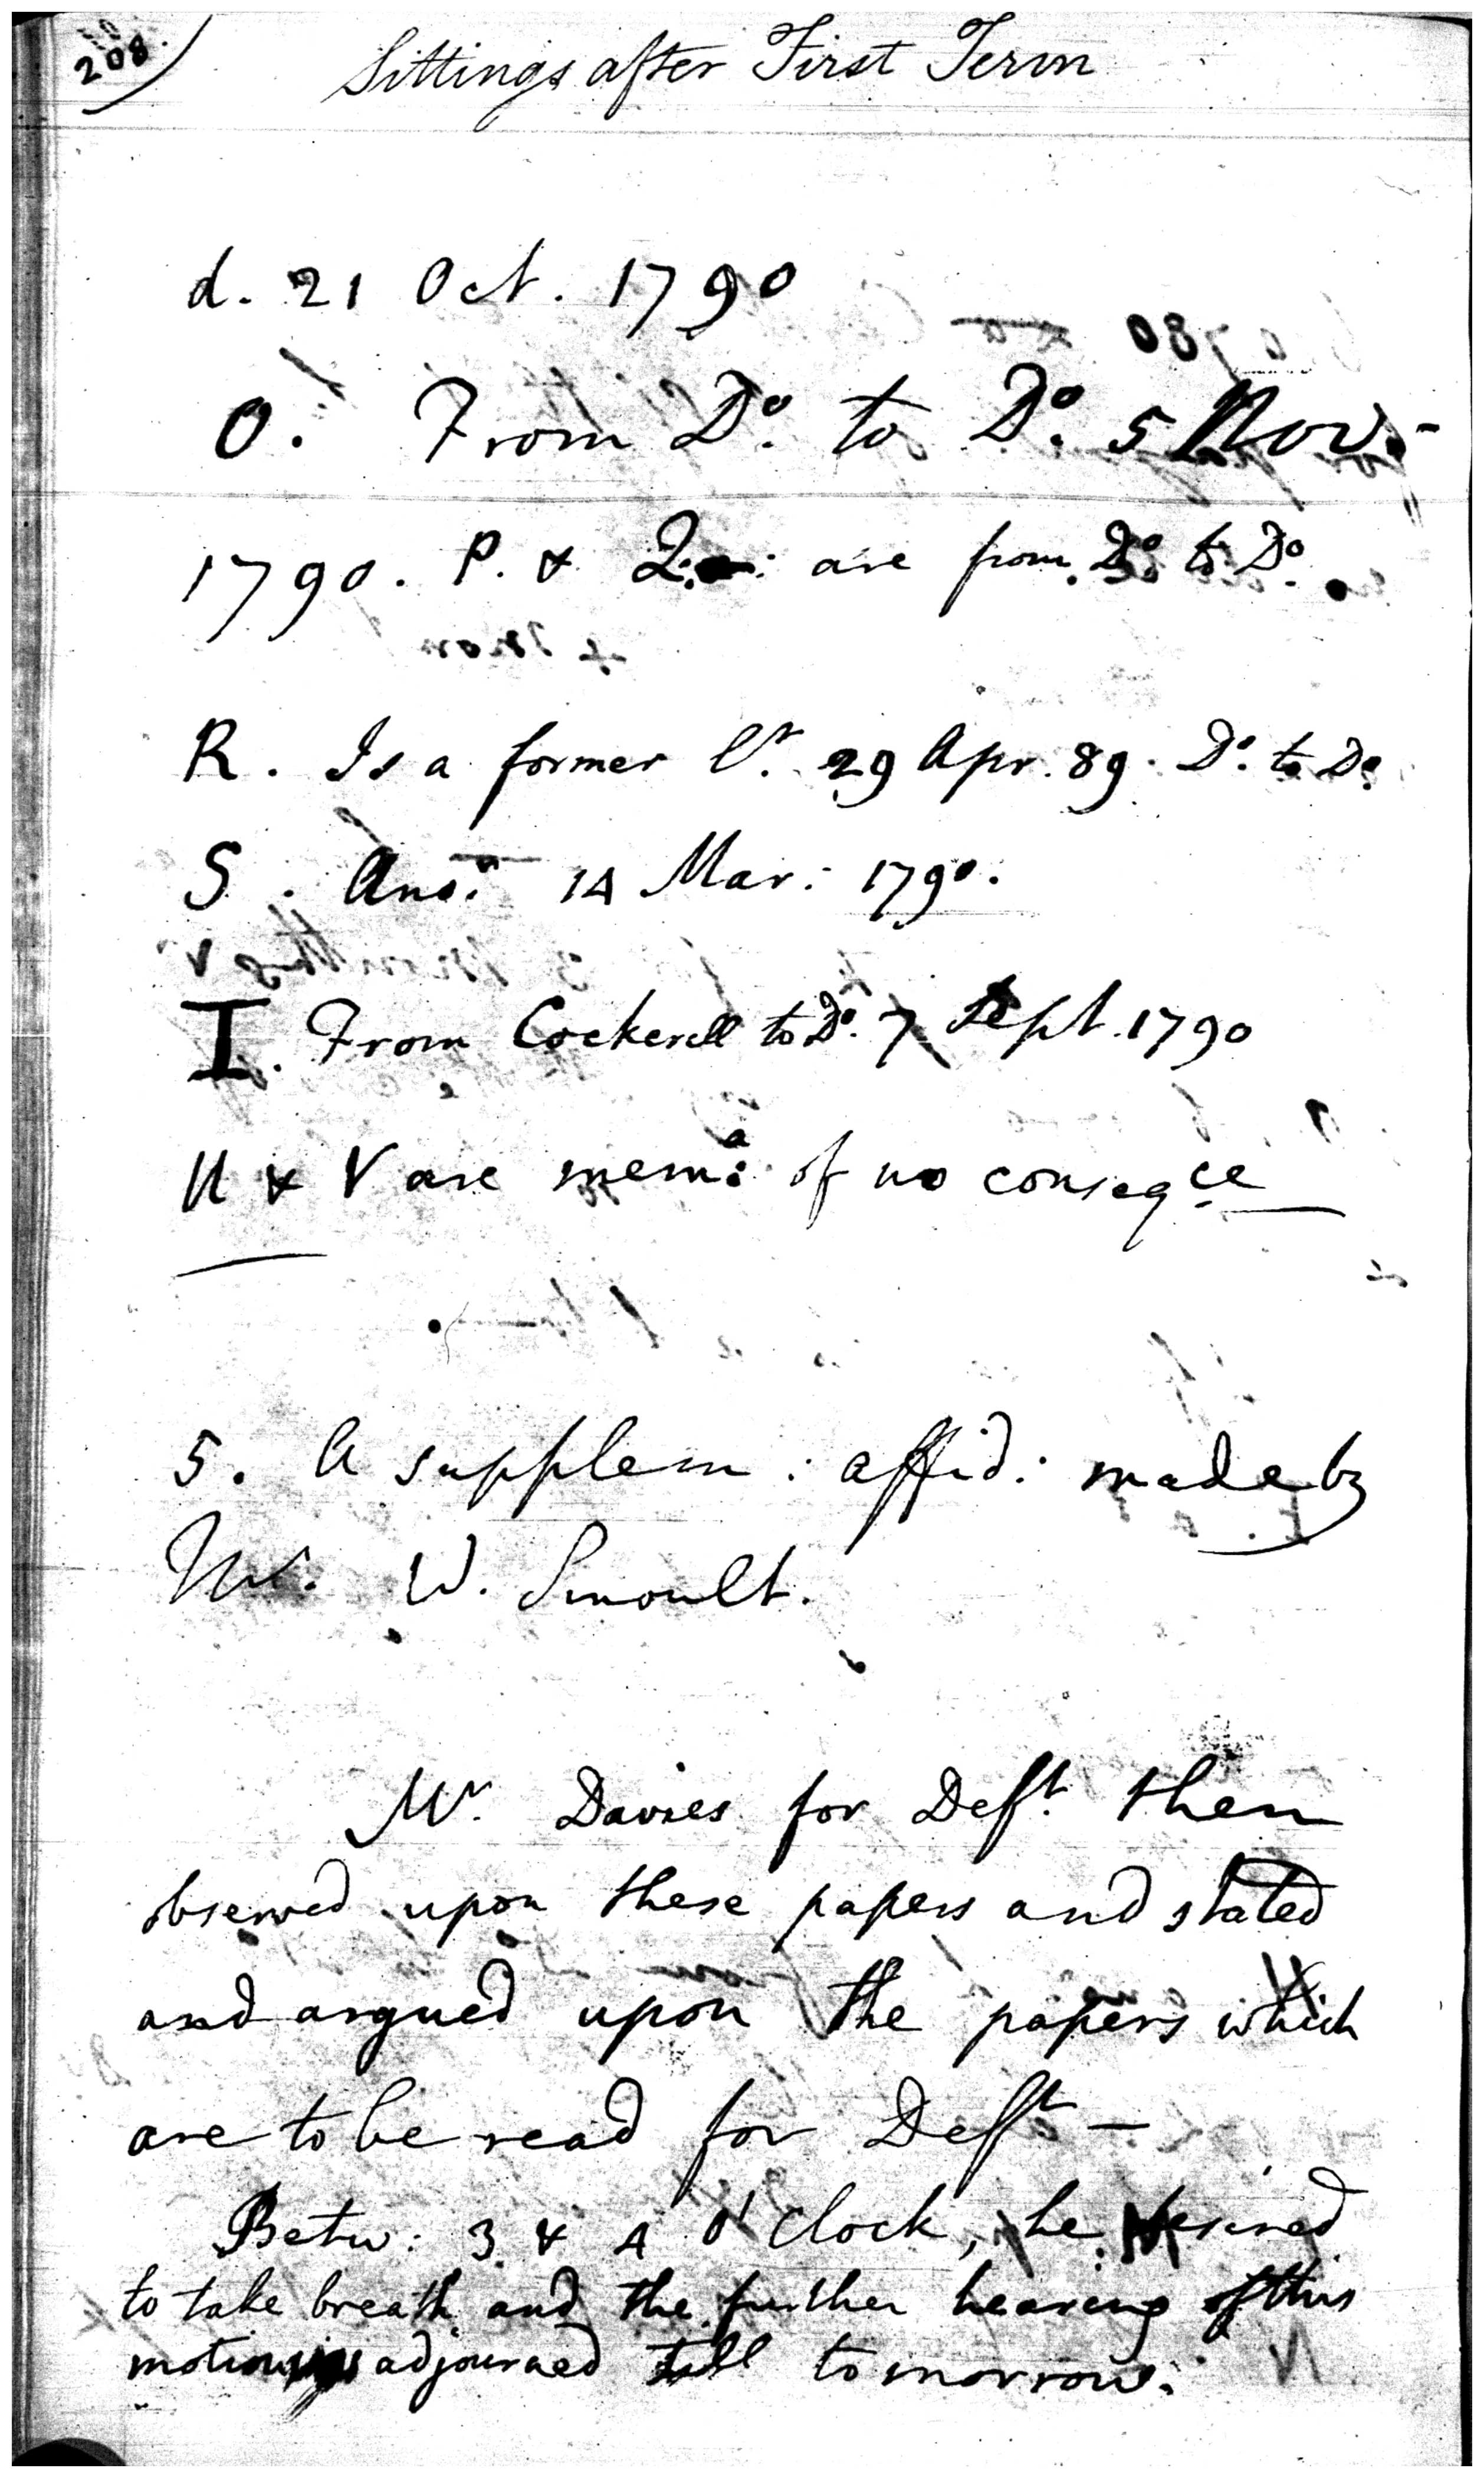 208
Sittings after First Term
d. 21 Oct. 1790
O. From Do. to Do. 5 Nov.
1790. P. & Q. are from Do. to Do.
R. Is a former lr. 29 Apr. 89. Do. to Do.
S. Ansr. 14 Mar: 1790.
T. From Cockerell to Do. 7 Sept. 1790
U & V are mema: of no conseqce
5. A supplem: affid: made by
Mr. W. Smoult.
Mr. Davies for Deft. then
observed upon these papers and stated
and argued upon the papers which
are to be read for Deft —
Betw: 3 & 4 o'Clock, he desired
to take breath and the further hearing of this
motion is adjourned till tomorrow.